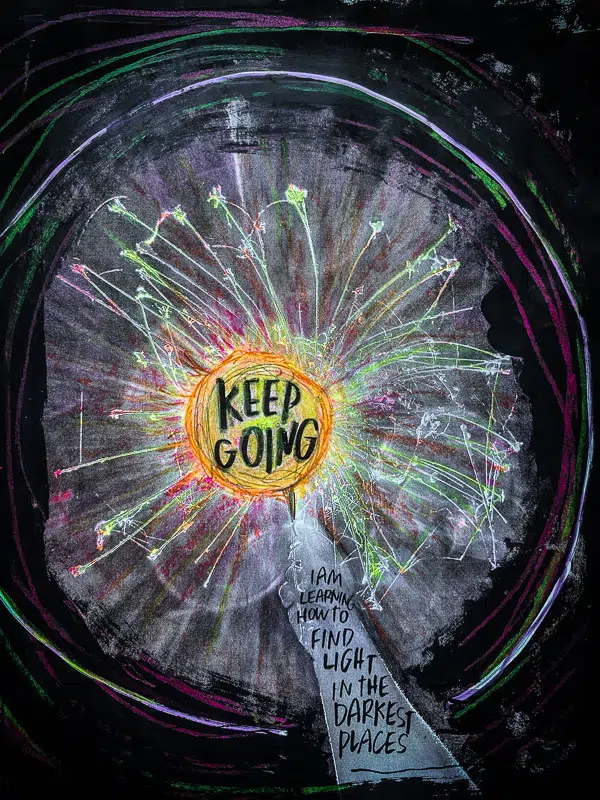 KEEP
GOING
I AM
LEARNING
HOW TO
FIND
LIGHT
IN THE
DARKEST
PLACES